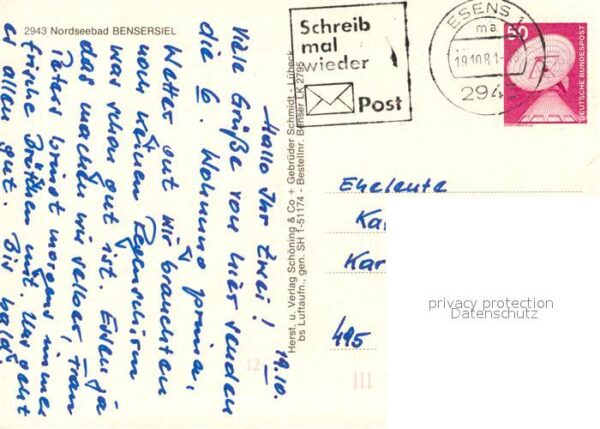 2943 Nordseebad BENSERSIEL
19.10.
Hallo Ihr Zwei!
Viele Grüße von hier senden
die 6. Wohnung prima,
Wetter gut wir brauchten
noch keinen Regenschirm
was schon gut ist. Essen ja
das machen wir selber,
Peter bringt morgens immer
frische Brötchen mit. Uns geht
es allen gut. Bis bald.
Herst. u. Verlag Schöning & Co + Gebrüder Schmidt - Lübeck
bs Luftaufn., gen. SH 1-51174 - Bestellnr. Benser LK 2795
Schreib
mal
wieder
Post
ESENS 1
ma
19.10.81
294
50
DEUTSCHE BUNDESPOST
Eheleute
Ka
Kar
495
privacy protection
Datenschutz
12